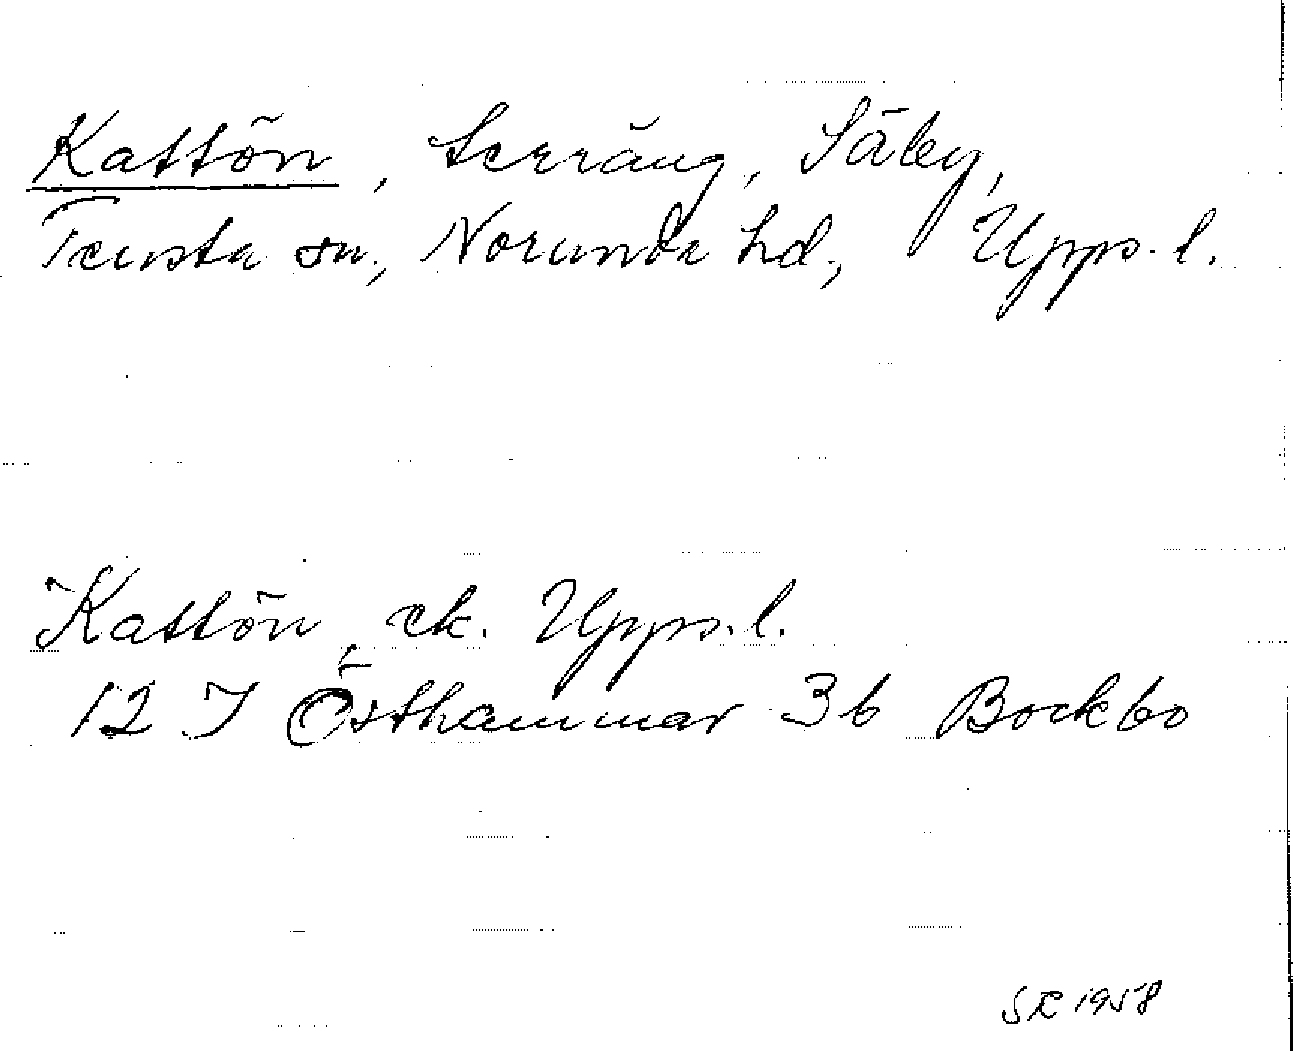 Kattön, terräng, Säby,
Tensta sn., Norunda hd., Upps. l.
Kattön, ek. Upps. l.
12 I Östhammar 3b Bockbo
1958